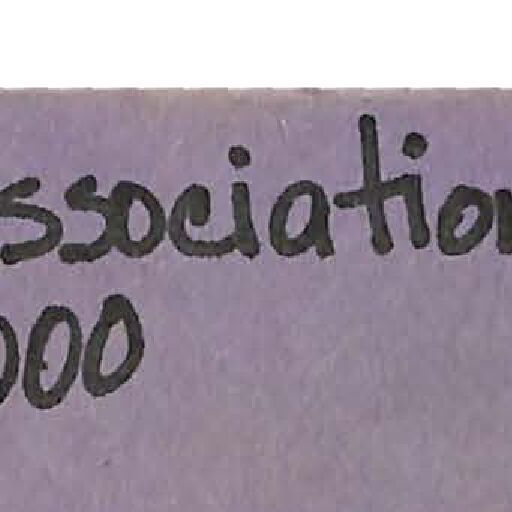 ssociation
000